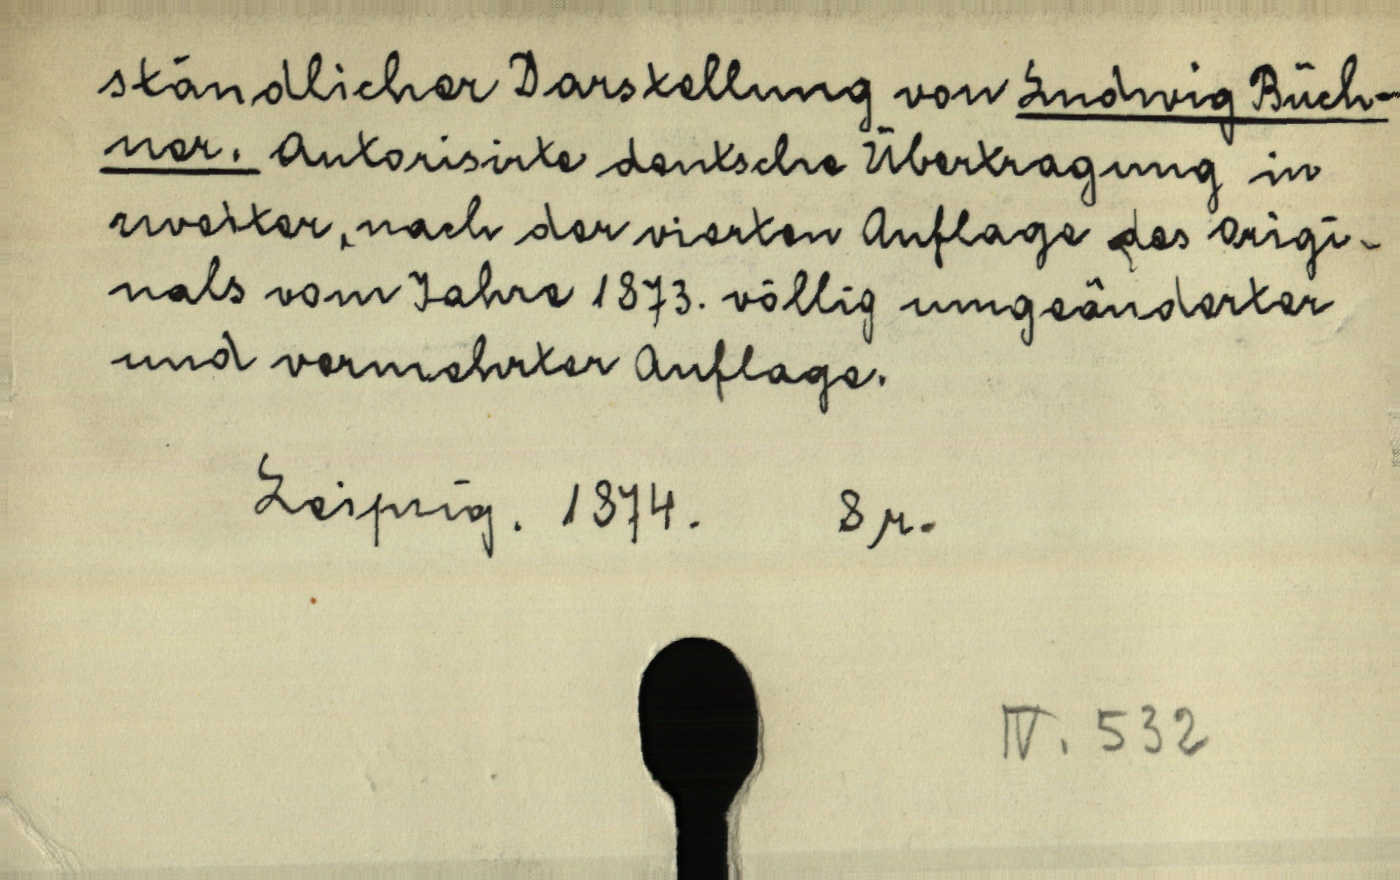 ständlicher Darstellung von Ludwig Büch-
ner. Autorisirte deutsche Übertragung in
zweiter, nach der vierten Auflage des Origi-
nals vom Jahre 1873. völlig umgeänderter
und vermehrter Auflage.
Leipzig. 1874. 8 r.
IV. 532